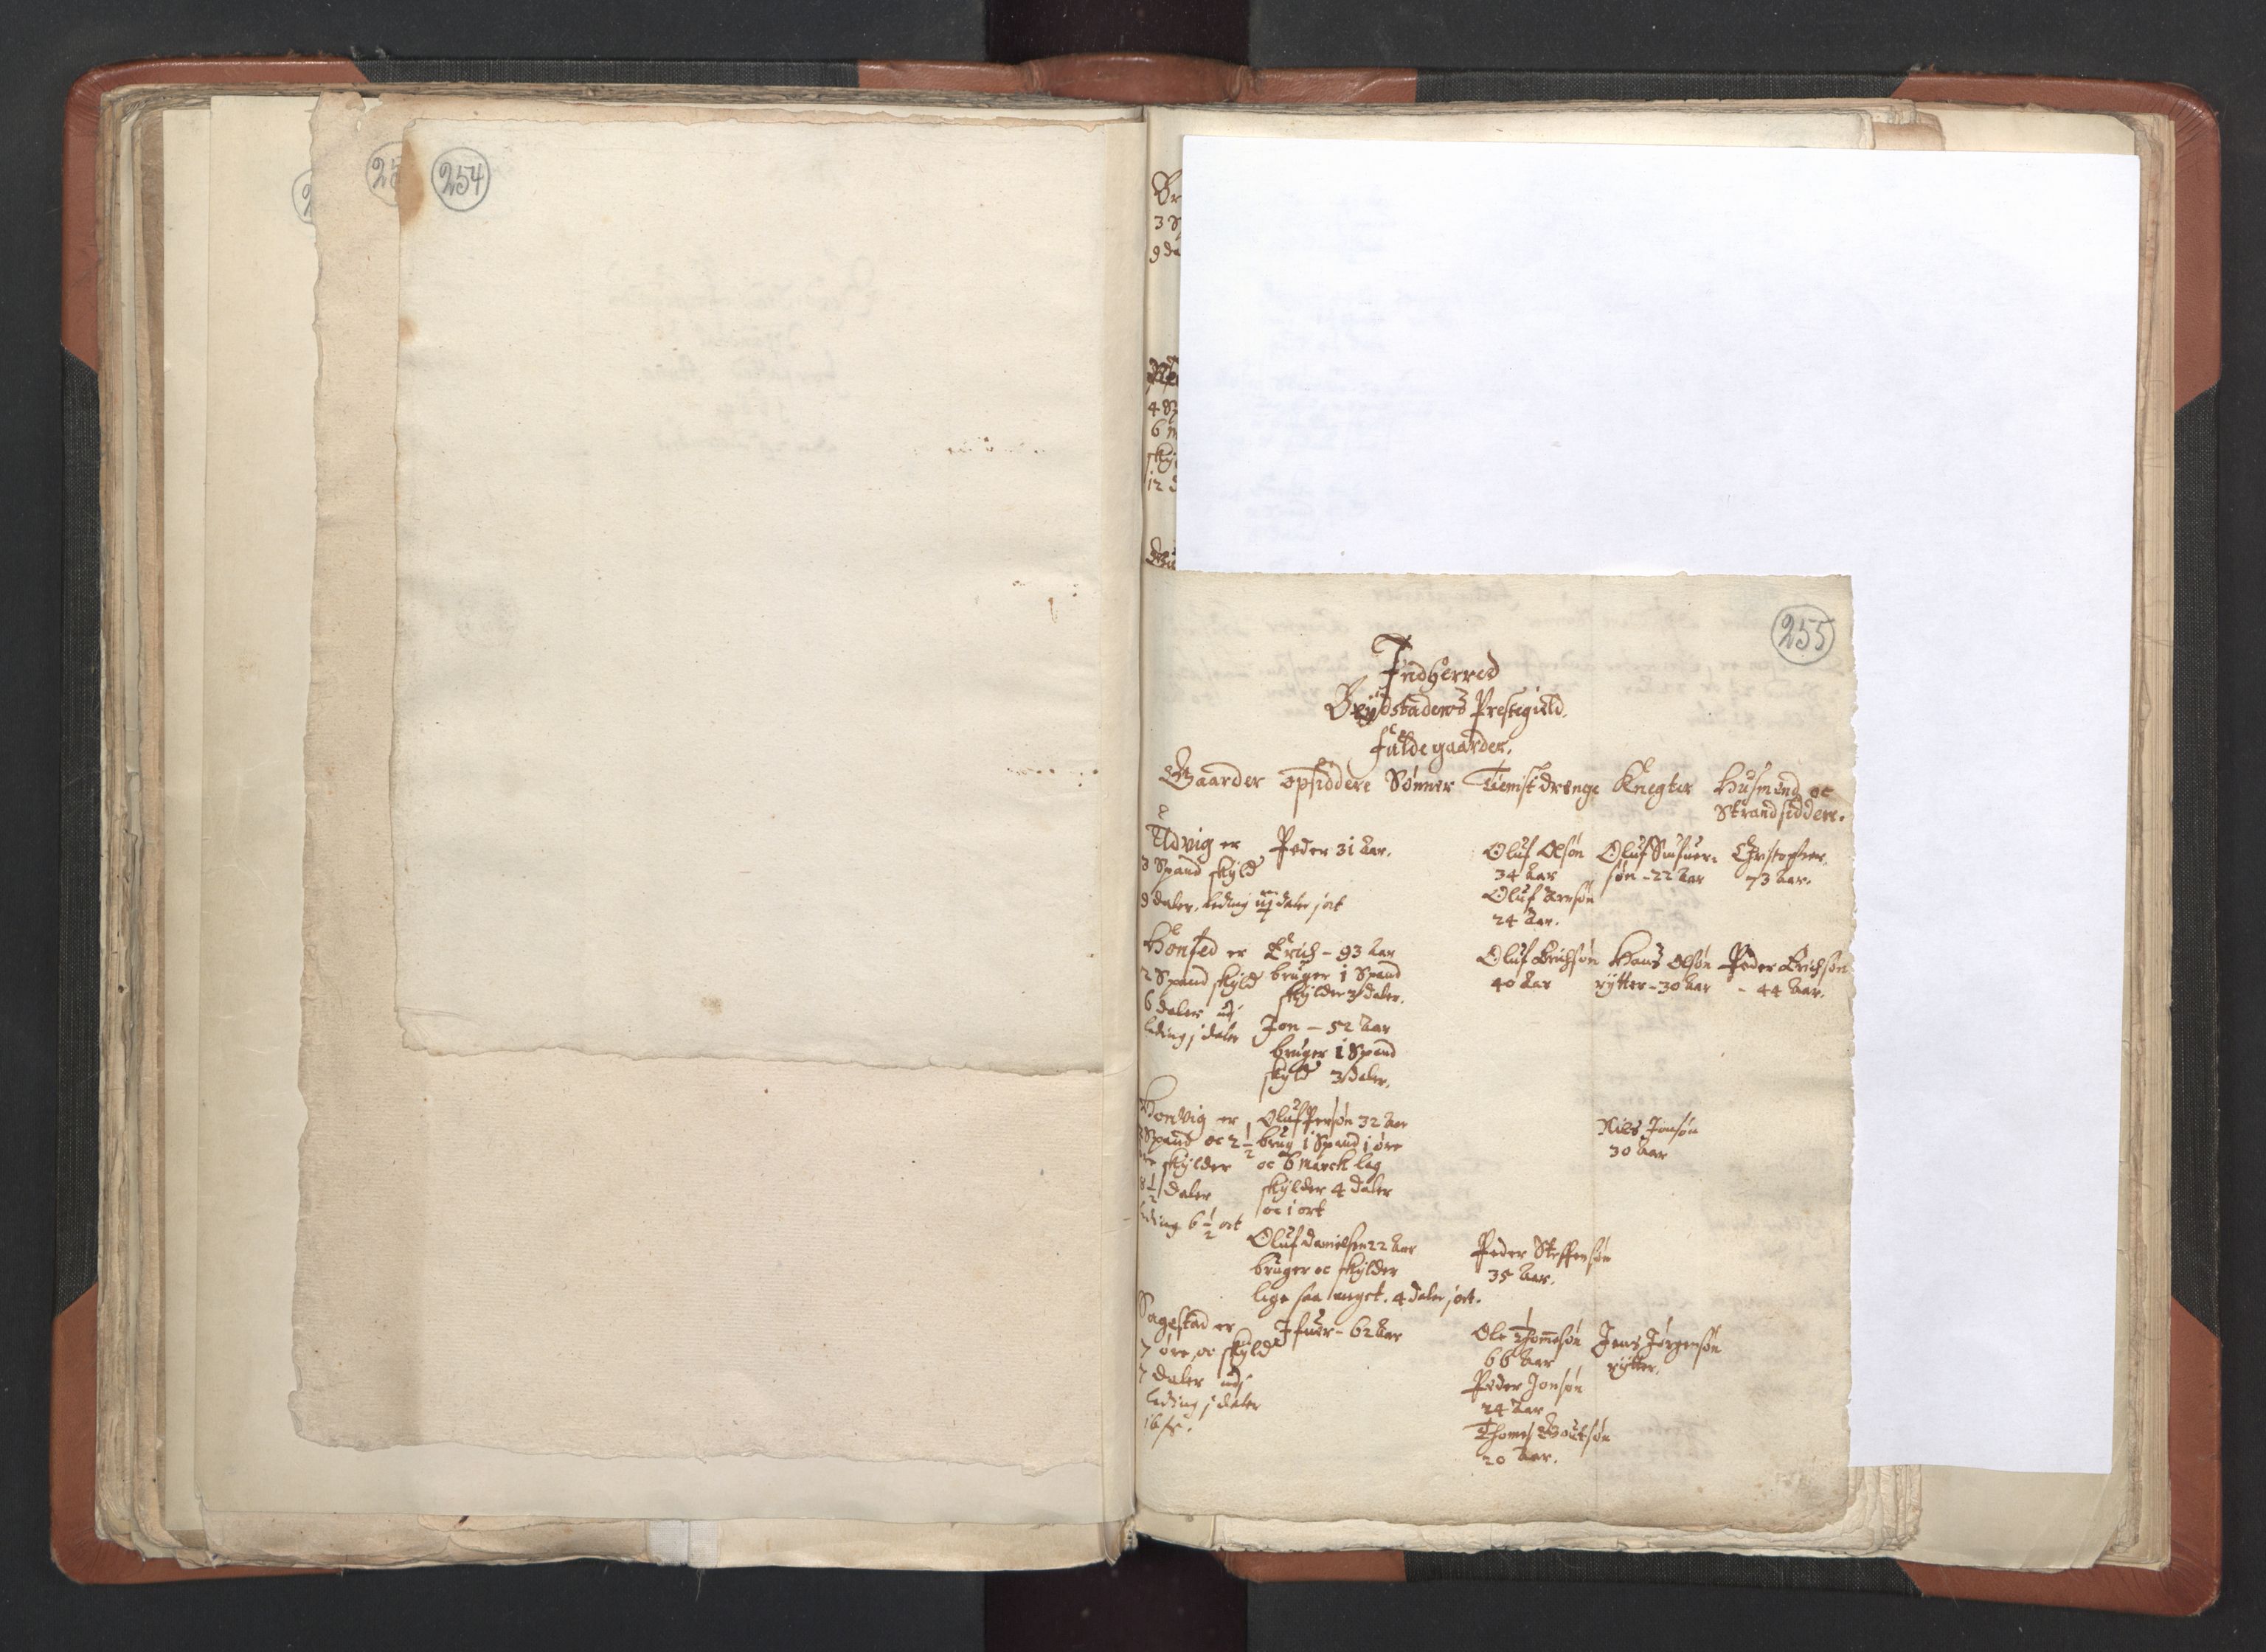 254
255
Indherred
Beydstadens Prestegield.
fulde gaarder.
Gaarder opsiddere Sønner Tienist drenge Knegter Husmend oc
Strandsiddere.
Udvig er Peder 31 Aar. Oluf Olsøn Oluf Christopher
3 Spand skyld 34 Aar søn - 22 Aar 73 Aar.
9 daler. leding daler j ort Oluf Arnsøn
24 Aar.
Erich - 93 Aar Oluf Erichsøn Hans Olsøn Peder Erichsøn
2 Spand skyld bruger 1 Spand 40 Aar rytter - 30 Aar - 44 Aar.
6 daler skylder 3 daler.
leding j daler Jon - 52 Aar
bruger 1 Spand
skyld 3 daler.
er Oluf Persøn 32 Aar Nils Jonsøn
Spand oc 2 1/2 brug 1 Spand 1 øre 30 Aar
skylder oc 6 marck lag
8 1/2 daler skylder 4 daler
leding 6 1/2 ort oc 1 ort
Oluf Danielsen 22 Aar Peder Steffensøn
bruger oc skylder 35 Aar.
lige saa meget. 4 daler j ort.
Sagestad er Ifuer - 62 Aar Ole Thommesøn Jens Jørgensøn
7 øre, oc skyld 66 Aar rytter.
7 daler Peder Jonsøn
leding j daler 24 Aar
16
20 Aar.